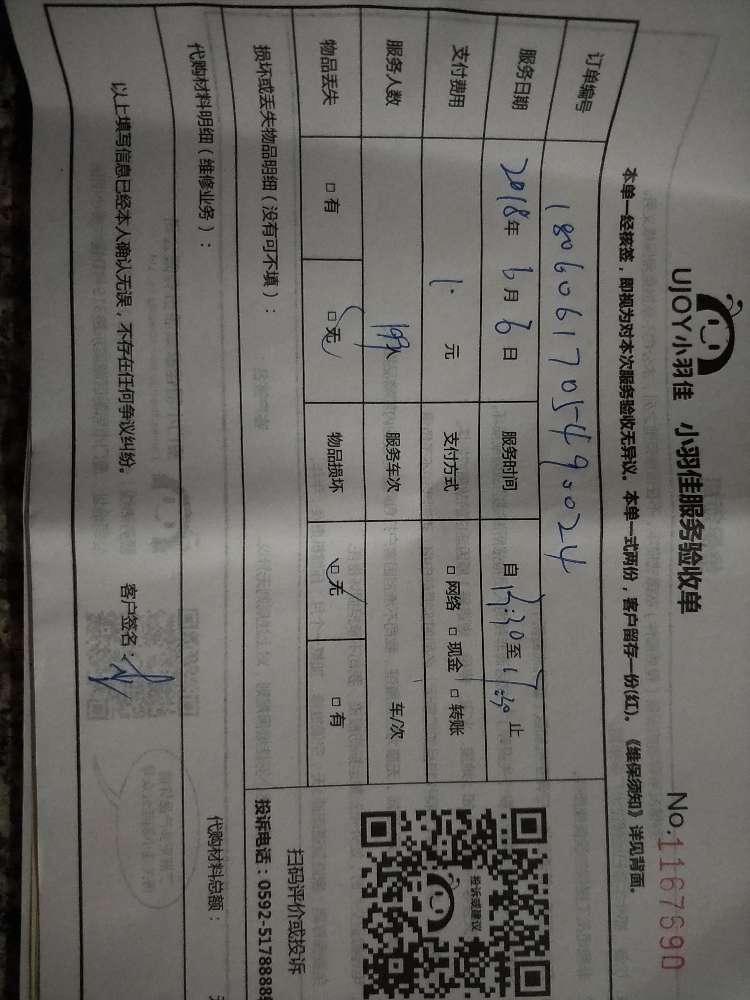 UJOY小羽佳 小羽佳服务验收单 No.1167690
本单一经核签，即视为对本次服务验收无异议。本单一式两份，客户留存一份(红)。《维保须知》详见背面。
订单编号 1806061705490024
服务日期 2018年6月6日 服务时间 自 13:30至17:30止
支付费用 元 支付方式 □网络 □现金 □转账
服务人数 人 服务车次 车/次
物品丢失 □有 □无 物品损坏 □无 □有
损坏或丢失物品明细（没有可不填）：
代购材料明细（维修业务）： 代购材料总额：
以上填写信息已经本人确认无误，不存在任何争议纠纷。 客户签名：
投诉或建议
扫码评价或投诉
投诉电话：0592-5178885